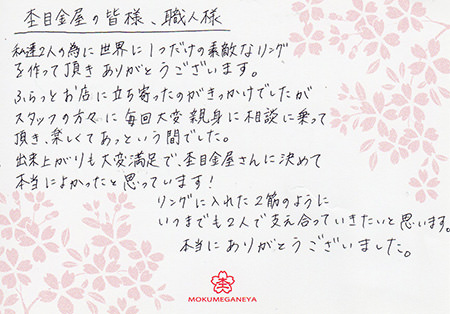 杢目金屋の皆様、職人様
私達2人の為に世界に1つだけの素敵なリング
を作って頂きありがとうございます。
ふらっとお店に立ち寄ったのがきっかけでしたが
スタッフの方々に毎回大変親身に相談に乗って
頂き、楽しくてあっという間でした。
出来上がりも大変満足で、杢目金屋さんに決めて
本当によかったと思っています!
リングに入れた2筋のように
いつまでも2人で支え合っていきたいと思います。
本当にありがとうございました。
MOKUMEGANEYA